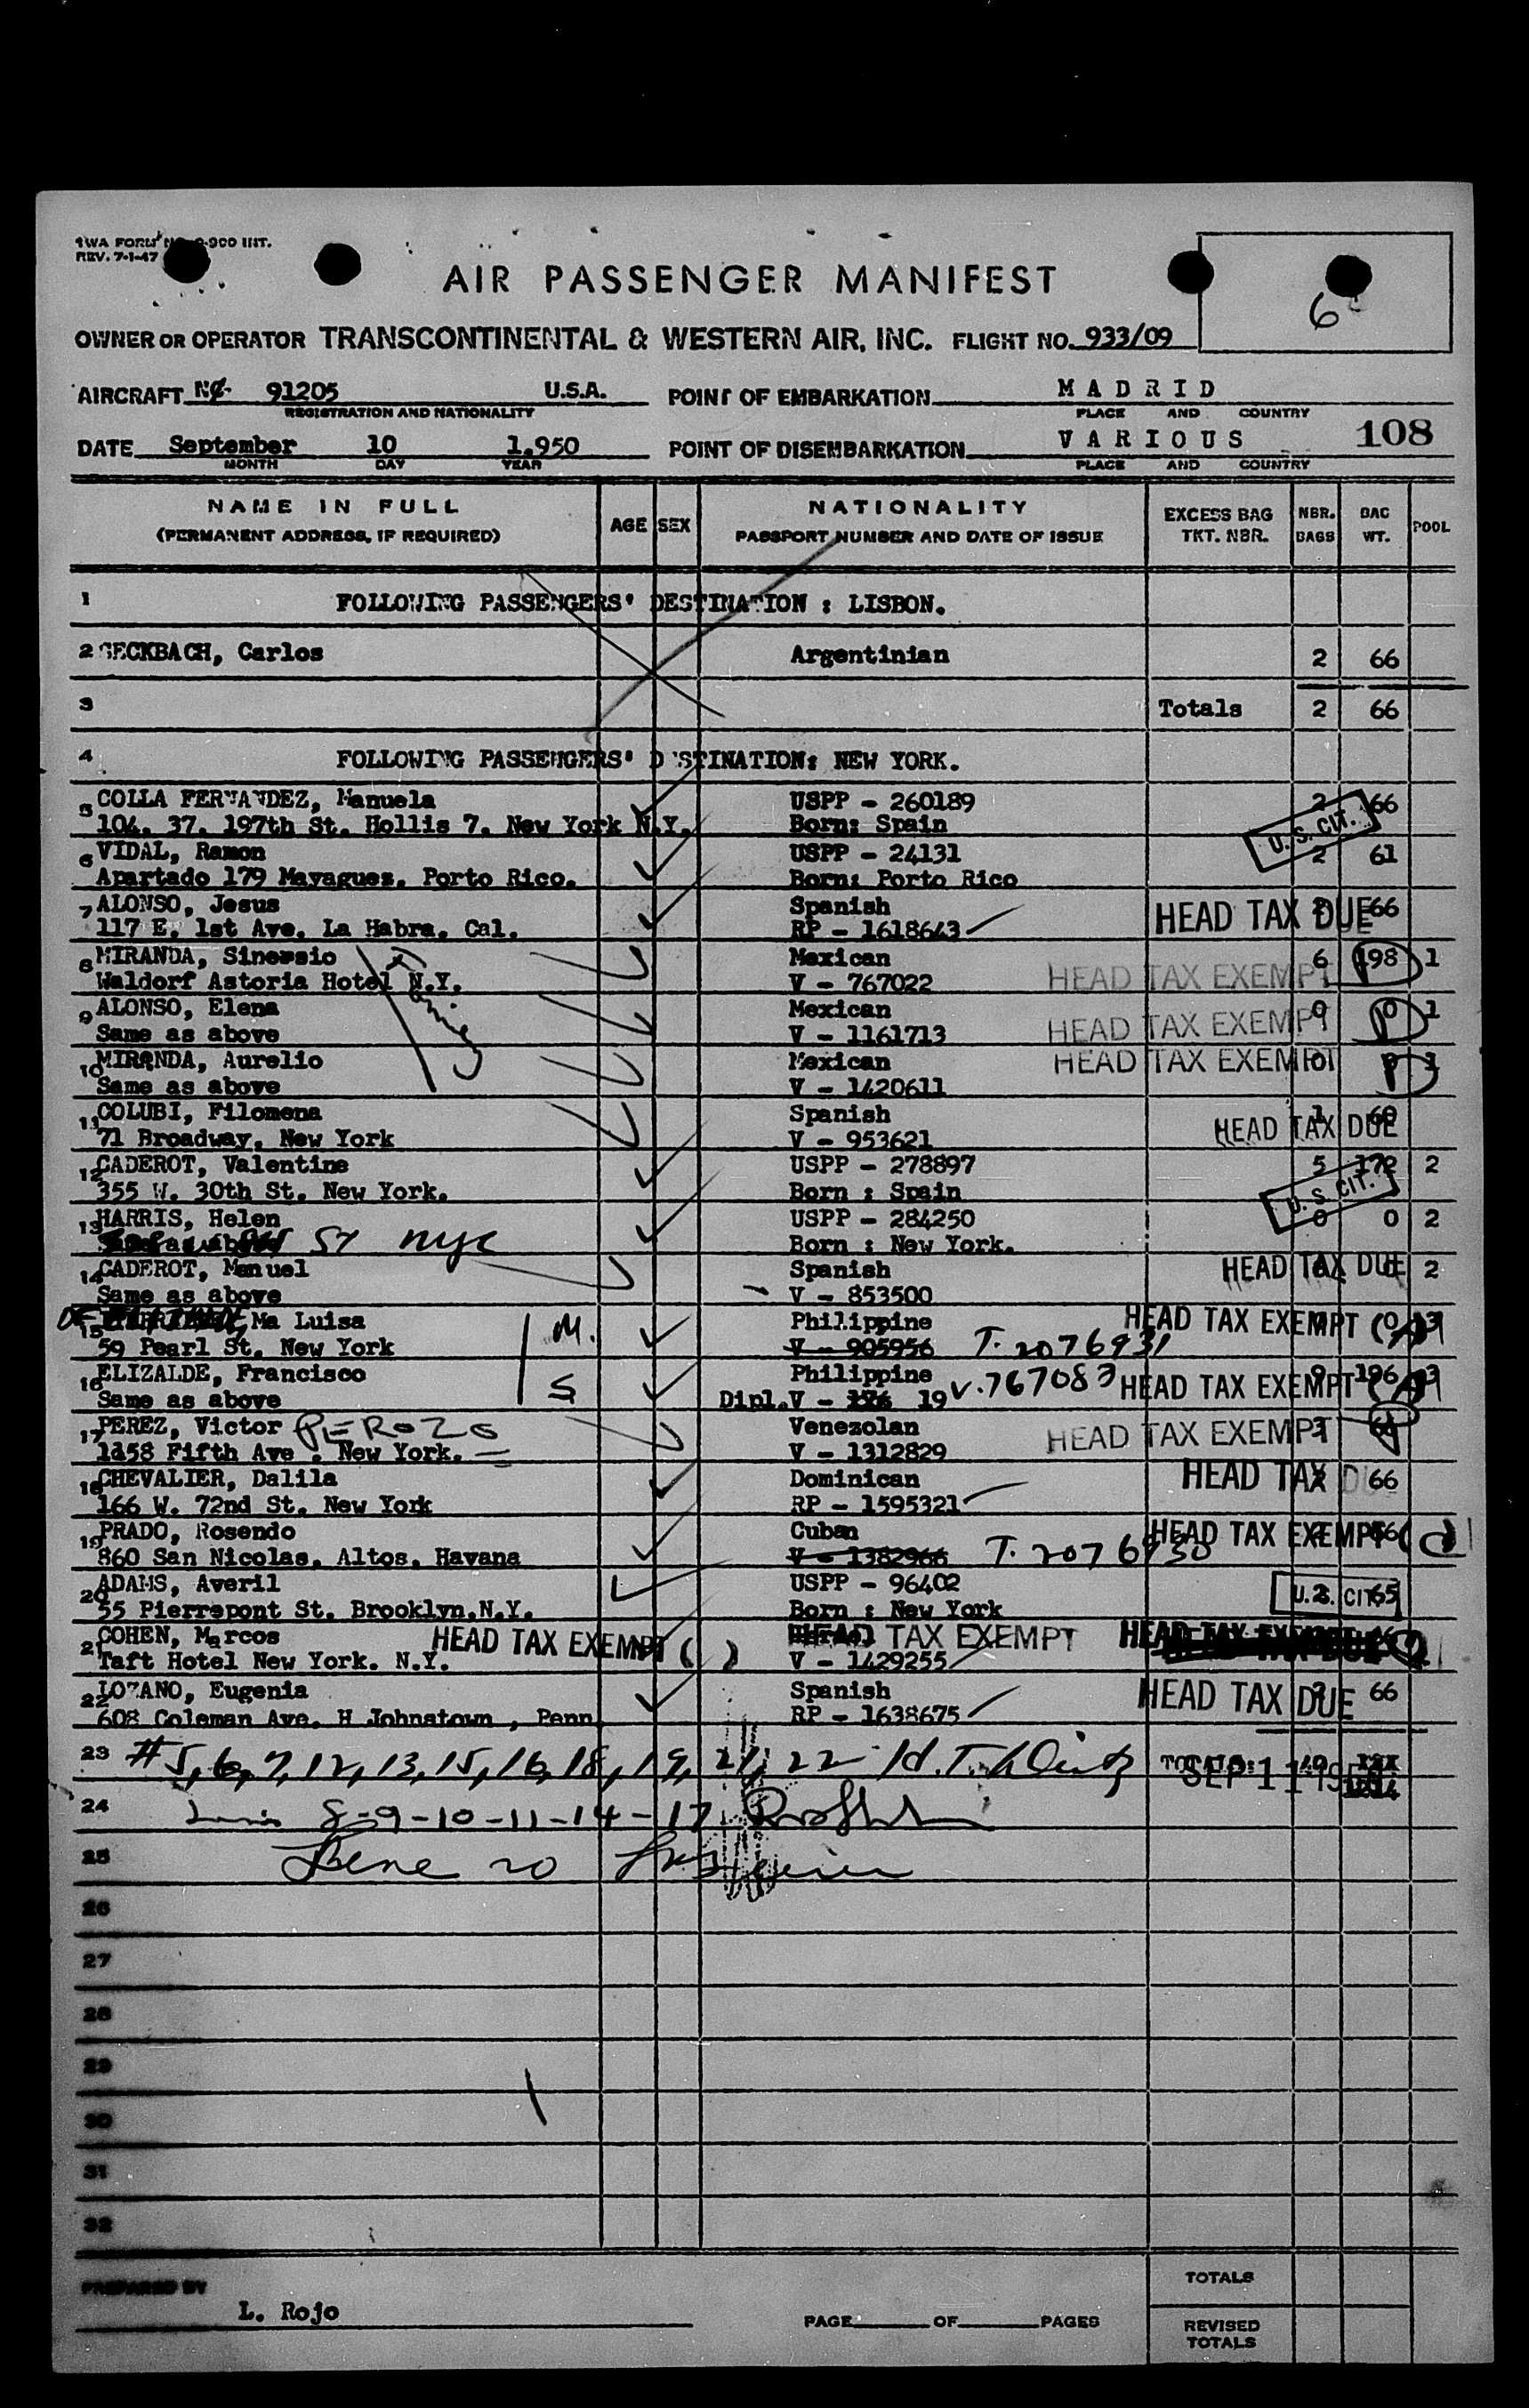 TWA FORM 900 INT.
REV. 7-1-47
AIR PASSENGER MANIFEST
6
OWNER OR OPERATOR TRANSCONTINENTAL & WESTERN AIR, INC. FLIGHT NO. 933/09
AIRCRAFT NC- 91205 U.S.A. POINT OF EMBARKATION MADRID
REGISTRATION AND NATIONALITY PLACE AND COUNTRY
DATE September 10 1.950 POINT OF DISEMBARKATION VARIOUS 108
MONTH DAY YEAR PLACE AND COUNTRY
NAME IN FULL AGE SEX NATIONALITY EXCESS BAG NBR. BAG POOL
(PERMANENT ADDRESS, IF REQUIRED) PASSPORT NUMBER AND DATE OF ISSUE TKT. NBR. BAGS WT.
1 FOLLOWING PASSENGERS' DESTINATION : LISBON.
2 BECKBACH, Carlos Argentinian 2 66
3 Totals 2 66
4 FOLLOWING PASSENGERS' DESTINATION: NEW YORK.
5 COLLA FERNANDEZ, Manuela USPP - 260189 2 66
104. 37. 197th St. Hollis 7. New York N.Y. Born: Spain U. S. CIT.
6 VIDAL, Ramon USPP - 24131 2 61
Apartado 179 Mayaguez. Porto Rico. Born: Porto Rico
7 ALONSO, Jesus Spanish HEAD TAX DUE 66
117 E. 1st Ave. La Habra. Cal. RP - 1618643
8 MIRANDA, Sinersio Mexican 6 198 1
Waldorf Astoria Hotel N.Y. V - 767022 HEAD TAX EXEMPT
9 ALONSO, Elena Mexican 0 0 1
Same as above V - 1161713 HEAD TAX EXEMPT
10 MIRANDA, Aurelio Mexican HEAD TAX EXEMPT 0 1
Same as above V - 1420611
11 COLUBI, Filomena Spanish 1 60
71 Broadway. New York V - 953621 HEAD TAX DUE
12 CADEROT, Valentine USPP - 278897 5 172 2
355 W. 30th St. New York. Born : Spain U. S. CIT.
13 HARRIS, Helen USPP - 284250 0 0 2
St nyc Born : New York.
14 CADEROT, Manuel Spanish HEAD TAX DUE 2
Same as above V - 853500
15 DE Ma Luisa M. Philippine HEAD TAX EXEMPT 3
59 Pearl St. New York V - 905956 T. 2076931
16 ELIZALDE, Francisco S Philippine V. 767083 HEAD TAX EXEMPT 196 3
Same as above Dipl.V - 19
17 PEREZ, Victor PEROZO Venezolan 3
1158 Fifth Ave . New York. V - 1312829 HEAD TAX EXEMPT
18 CHEVALIER, Dalila Dominican HEAD TAX DUE 66
166 W. 72nd St. New York RP - 1595321
19 PRADO, Rosendo Cuban HEAD TAX EXEMPT 66
860 San Nicolas. Altos. Havana V - 1382966 T. 2076930
20 ADAMS, Averil USPP - 96402 U.S. CIT. 65
55 Pierrepont St. Brooklyn.N.Y. Born : New York
21 COHEN, Marcos HEAD TAX EXEMPT ( ) HEAD TAX EXEMPT HEAD TAX EXEMPT
Taft Hotel New York. N.Y. V - 1429255
22 LOZANO, Eugenia Spanish HEAD TAX DUE 66
608 Coleman Ave. H Johnstown , Penn RP - 1638675
23 # 5, 6, 7, 12, 13, 15, 16, 18, 19, 21, 22 H.T. TOTALS: 40 SEP 11 1950
24 8-9-10-11-14-17
25 20
26
27
28
29
30
31
32
PREPARED BY L. Rojo
PAGE OF PAGES
TOTALS
REVISED TOTALS